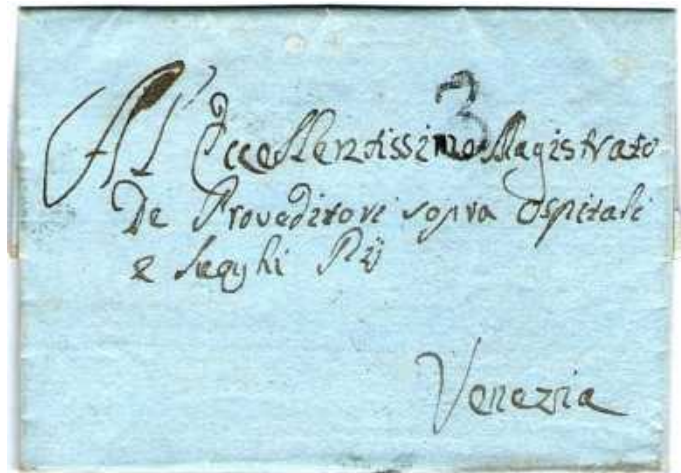 3
All' Eccellentissimo Magistrato
De Proveditori sopra Ospitali
e Luoghi Pij
Venezia